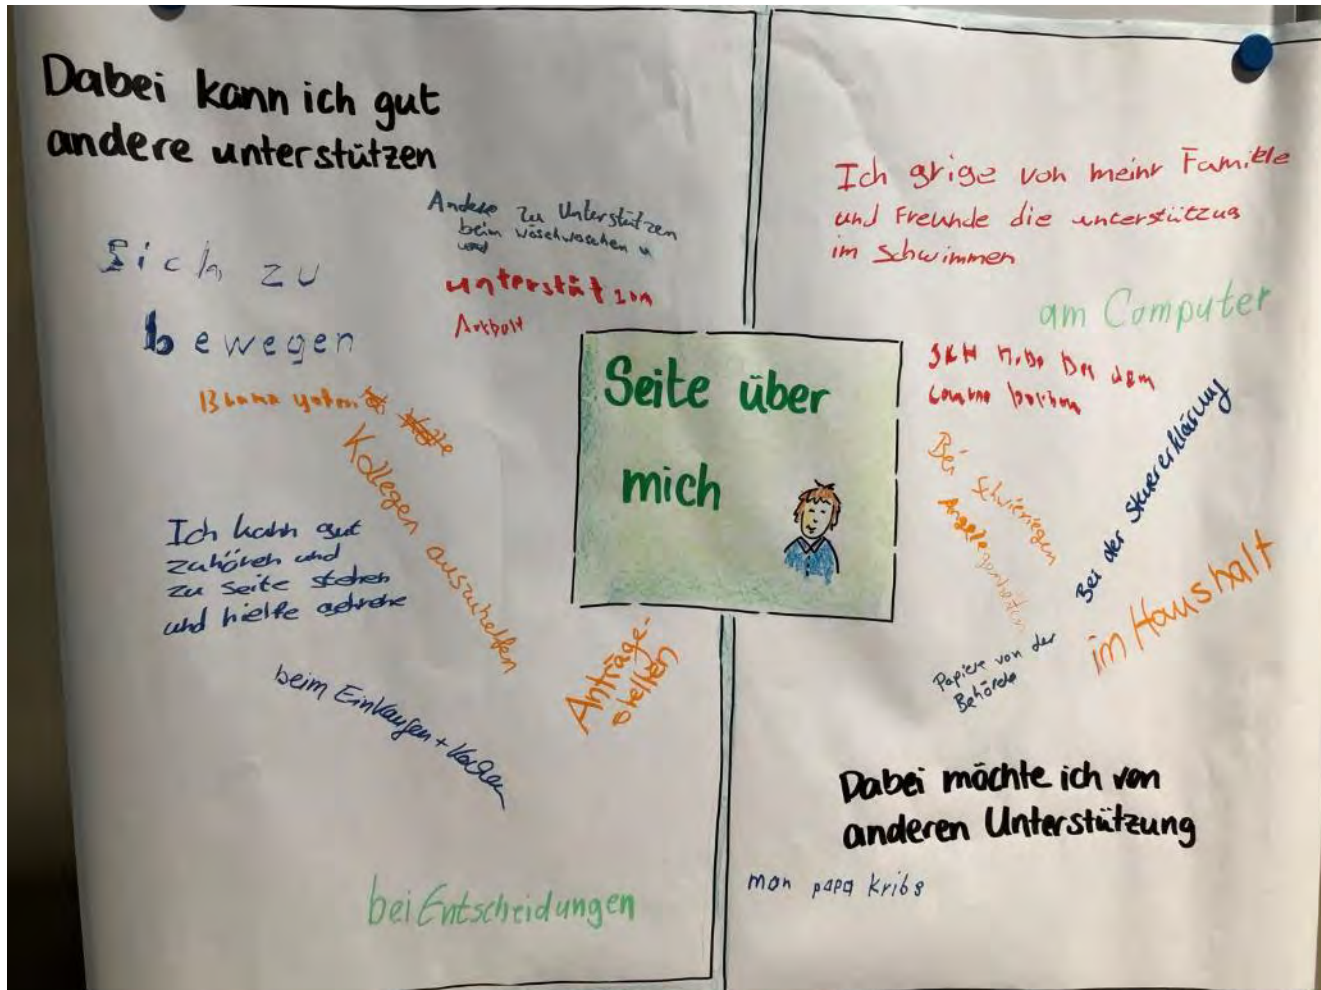 Dabei kann ich gut
andere unterstützen
Andere zu Unterstützen
beim wäschwaschen u
und
unterstätzon
Sich zu
bewegen
Kollegen auszuhelfen
Ich kann gut
zuhören und
zu Seite stehen
und hielfe
beim Einkaufen + Kochen
Anträge-
stellen
bei Entscheidungen
Seite über
mich
Ich grige von meinr Familie
und Freunde die unterstützug
im Schwimmen
am Computer
Bei Schwierigen
Angelegenheiten
Bei der Steuererklärung
im Haushalt
Papiere von der
Behörde
Dabei möchte ich von
anderen Unterstützung
man papa kribs